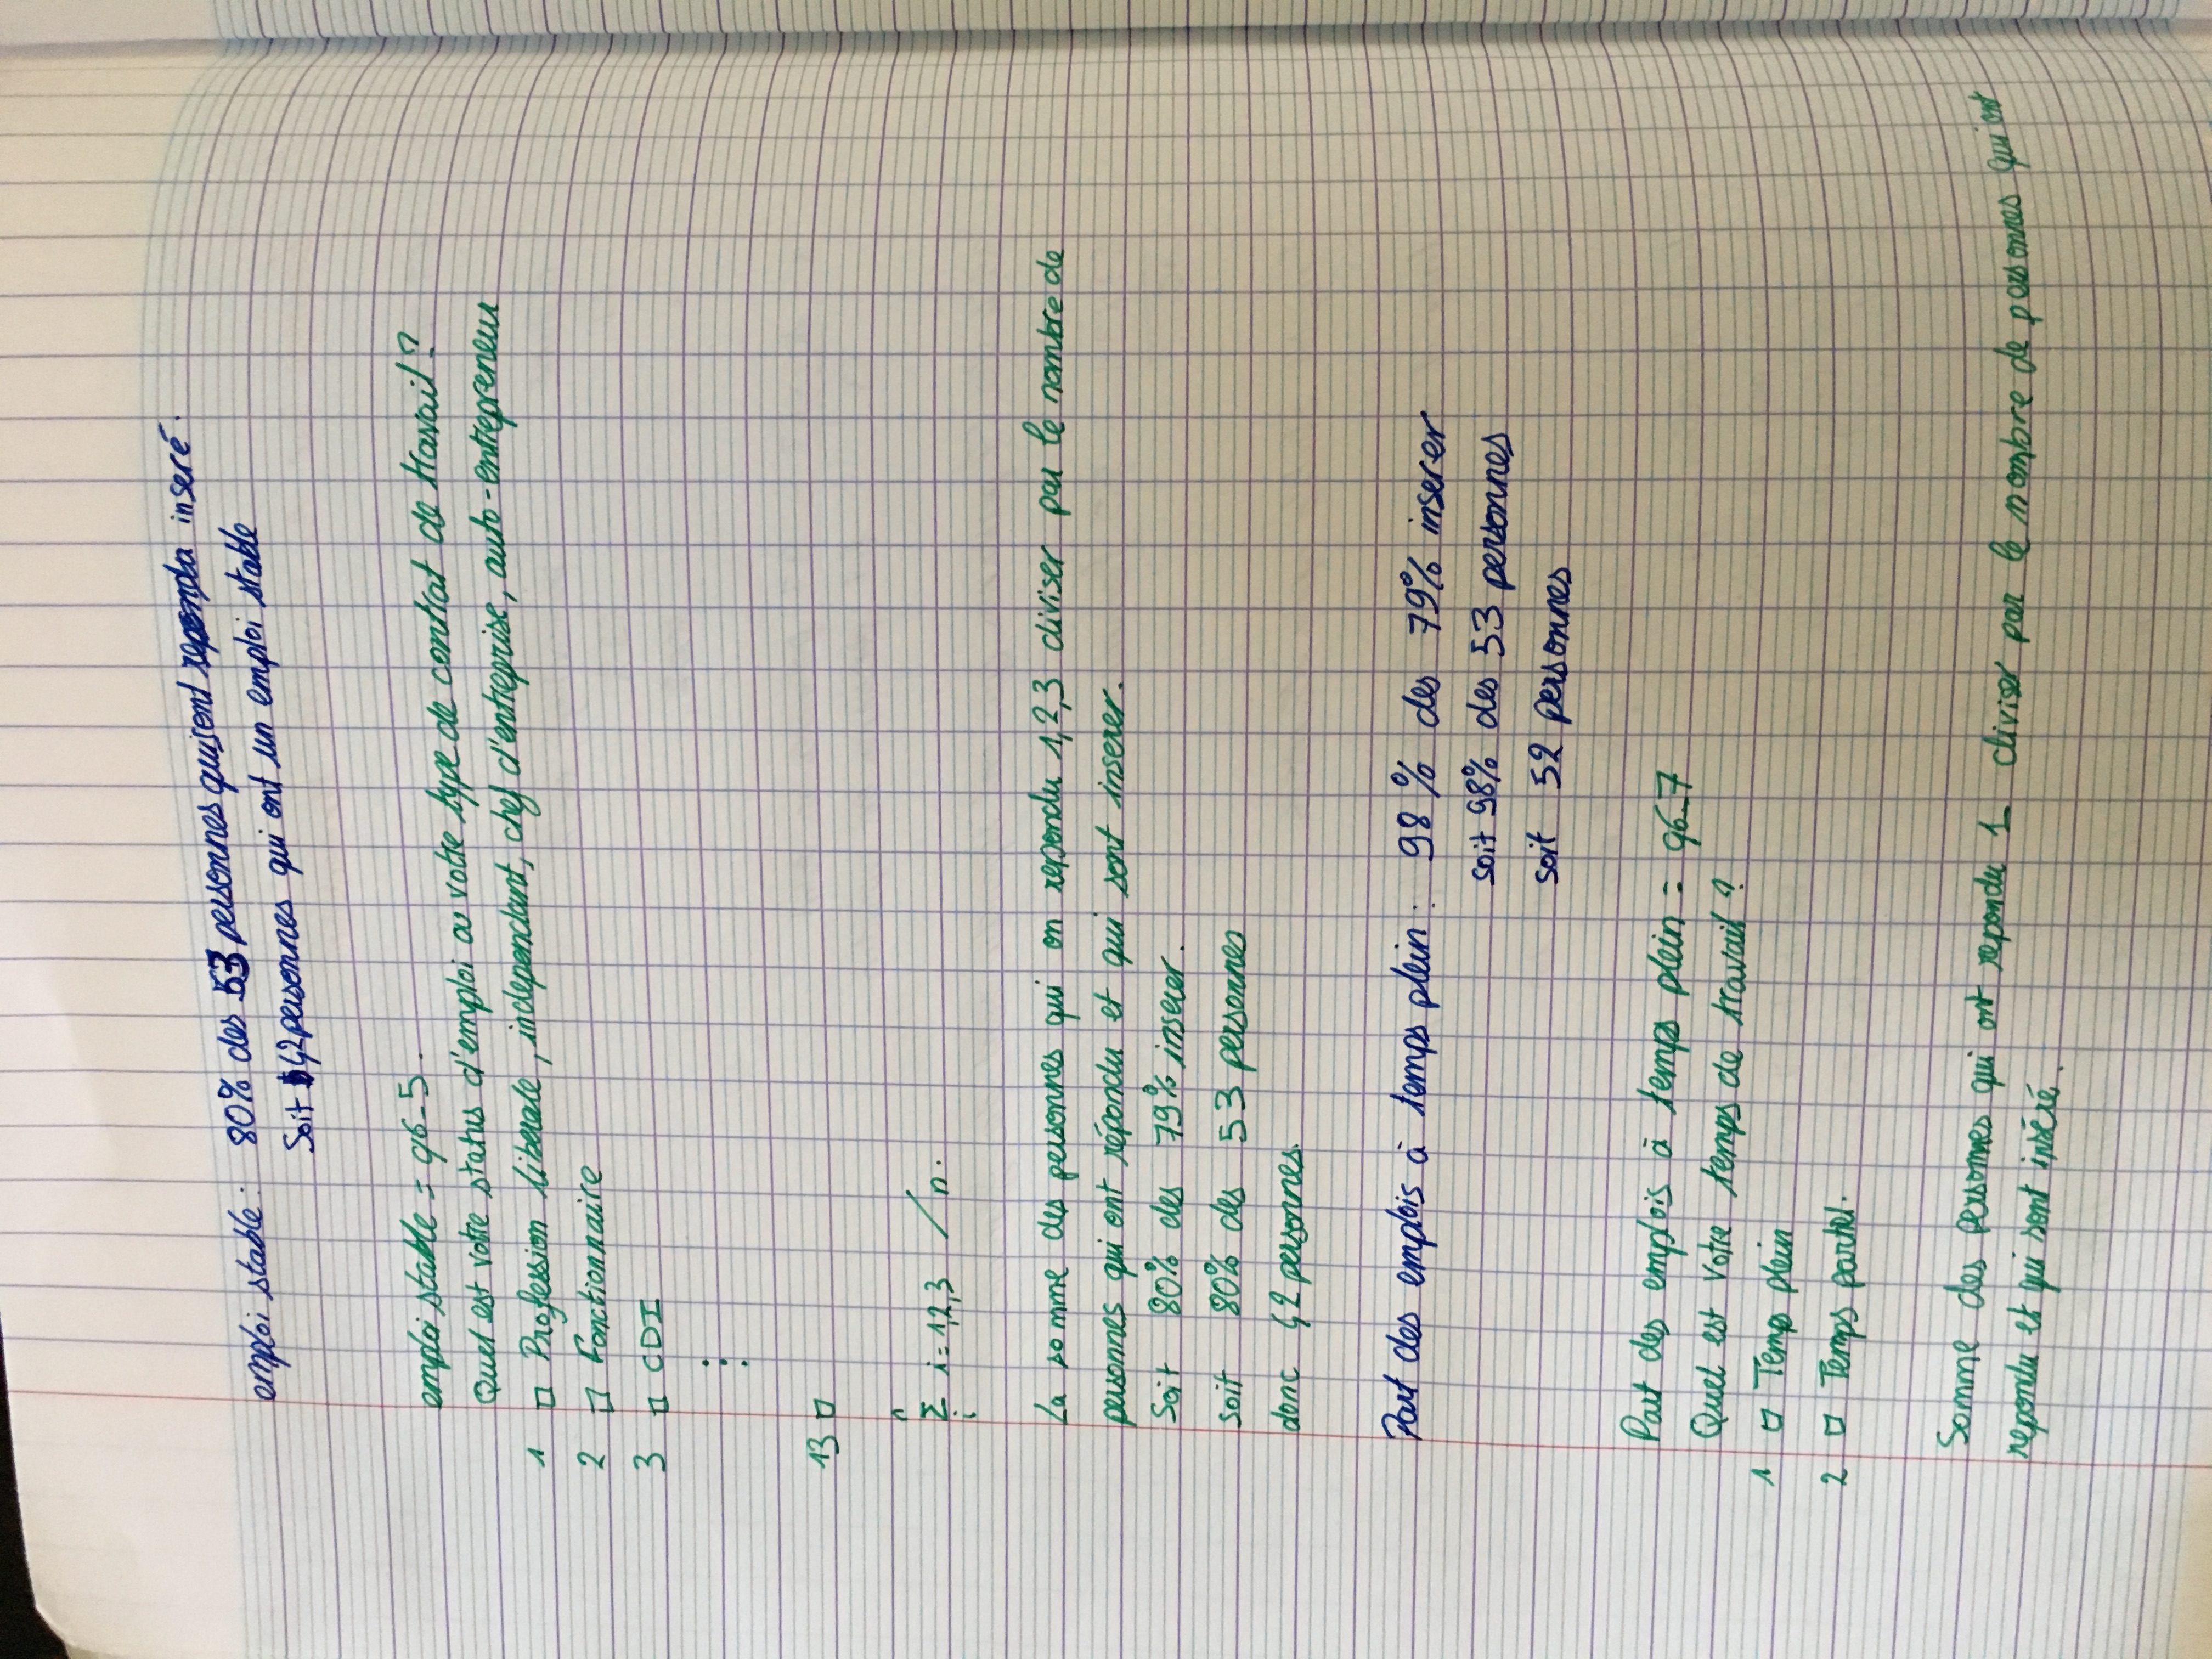 emploi stable : 80% des 53 personnes qui sont inseré.
Soit 42 personnes qui ont un emploi stable
emploi stable = q6_5.
Quel est votre status d'emploi ou votre type de contrat de travail ?
1 □ Profession liberale, independant, chef d'entreprise, auto-entrepreneur
2 □ Fonctionnaire
3 □ CDI
⋮
13 □
n
Σ i=1,2,3 / n.
i
La somme des personnes qui on repondu 1,2,3 diviser par le nombre de
personnes qui ont répondu et qui sont inserer.
Soit 80% des 79% inserer.
soit 80% des 53 personnes
donc 42 personnes.
Part des emplois à temps plein : 98% des 79% inserer
soit 98% des 53 personnes
soit 52 personnes
Part des emplois à temps plein = q6_7
Quel est votre temps de travail ?
1 □ Temps plein
2 □ Temps partiel.
Somme des personnes qui ont repondu 1 diviser par le nombre de personnes qui ont
repondu et qui sont inséré.